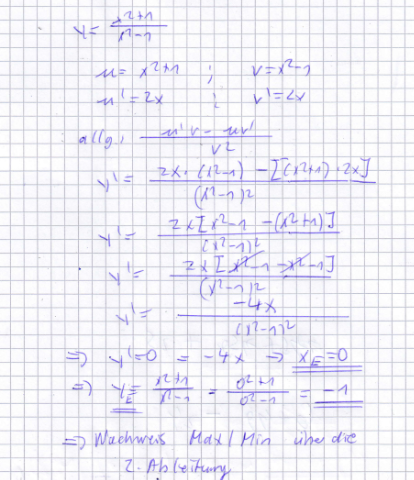 y = x²+1 / x²-1
u = x²+1 ; v = x²-1
u' = 2x ; v' = 2x
allg. u'v - uv' / v²
y' = 2x · (x²-1) - [(x²+1) · 2x] / (x²-1)²
y' = 2x [x²-1 - (x²+1)] / (x²-1)²
y' = 2x [x²-1 - x²-1] / (x²-1)²
y' = -4x / (x²-1)²
⇒ y' = 0 = -4x → x_E = 0
⇒ y_E = x²+1 / x²-1 = 0²+1 / 0²-1 = -1
⇒ Nachweis Max/Min über die
2. Ableitung